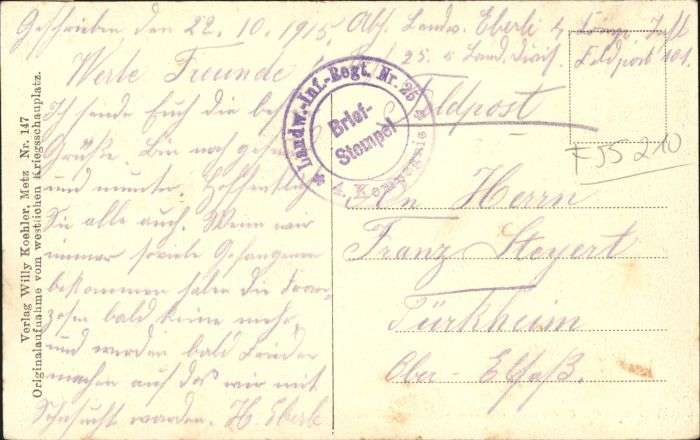 Geschrieben den 22.10.1915. Abs. Landw. Eberli 4 Komp. Inf.
Regt 25. Land. Divis. Feldpost 101.
Feldpost
Werte Freunde!
Ich sende Euch die besten
Grüße. Bin noch gesund
und munter. Hoffentlich
Sie alle auch. Wenn wir
immer soviele Gefangene
bekommen haben die Fran-
zosen bald keine mehr,
und werden bald Frieden
machen auf das wir mit
Sehnsucht warden. H. Eberle
An Herrn
Franz Steyert
Türkheim
Ober-Elsaß.
Landw.-Inf.-Regt. Nr. 25
Brief-
Stempel
4. Kompagnie
F 55 210
Verlag Willy Koehler, Metz Nr. 147
Originalaufnahme vom westlichen Kriegsschauplatz.